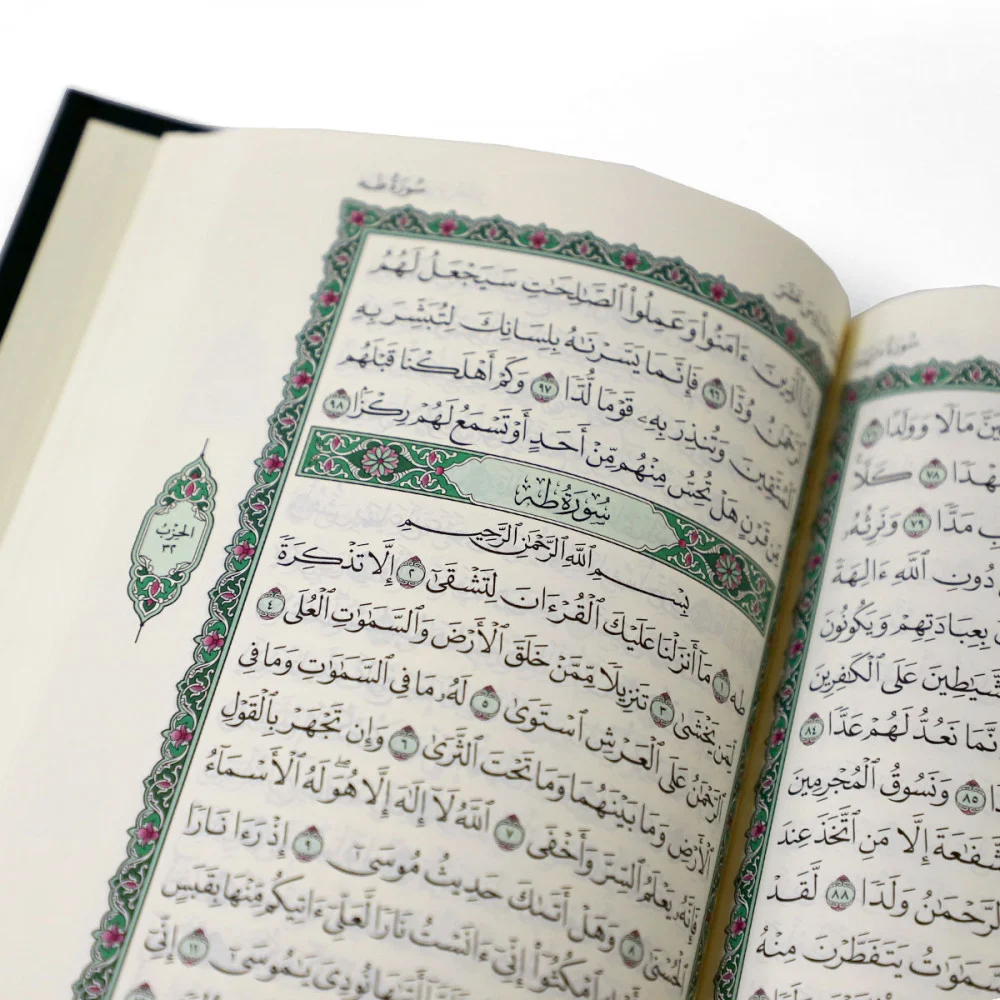 مَالًا وَوَلَدًا
٧٨ كَلَّا
مَدًّا ٧٩ وَنَرِثُهُۥ
دُونِ ٱللَّهِ ءَالِهَةً
بِعِبَادَتِهِمْ وَيَكُونُونَ
عَلَى ٱلْكَٰفِرِينَ
نَعُدُّ لَهُمْ عَدًّا ٨٤
٨٥ وَنَسُوقُ ٱلْمُجْرِمِينَ
إِلَّا مَنِ ٱتَّخَذَ عِندَ
وَلَدًا ٨٨ لَّقَدْ
يَتَفَطَّرْنَ مِنْهُ
سُورَةُ طه
إِنَّ ٱلَّذِينَ ءَامَنُوا۟ وَعَمِلُوا۟ ٱلصَّٰلِحَٰتِ سَيَجْعَلُ لَهُمُ
ٱلرَّحْمَٰنُ وُدًّا ٩٦ فَإِنَّمَا يَسَّرْنَٰهُ بِلِسَانِكَ لِتُبَشِّرَ بِهِ
ٱلْمُتَّقِينَ وَتُنذِرَ بِهِۦ قَوْمًا لُّدًّا ٩٧ وَكَمْ أَهْلَكْنَا قَبْلَهُم
مِّن قَرْنٍ هَلْ تُحِسُّ مِنْهُم مِّنْ أَحَدٍ أَوْ تَسْمَعُ لَهُمْ رِكْزًۢا ٩٨
سُورَةُ طه
بِسْمِ ٱللَّهِ ٱلرَّحْمَٰنِ ٱلرَّحِيمِ
طه ١ مَآ أَنزَلْنَا عَلَيْكَ ٱلْقُرْءَانَ لِتَشْقَىٰٓ ٢ إِلَّا تَذْكِرَةً
لِّمَن يَخْشَىٰ ٣ تَنزِيلًا مِّمَّنْ خَلَقَ ٱلْأَرْضَ وَٱلسَّمَٰوَٰتِ ٱلْعُلَى ٤
ٱلرَّحْمَٰنُ عَلَى ٱلْعَرْشِ ٱسْتَوَىٰ ٥ لَهُۥ مَا فِى ٱلسَّمَٰوَٰتِ وَمَا فِى
ٱلْأَرْضِ وَمَا بَيْنَهُمَا وَمَا تَحْتَ ٱلثَّرَىٰ ٦ وَإِن تَجْهَرْ بِٱلْقَوْلِ
فَإِنَّهُۥ يَعْلَمُ ٱلسِّرَّ وَأَخْفَى ٧ ٱللَّهُ لَآ إِلَٰهَ إِلَّا هُوَ ۖ لَهُ ٱلْأَسْمَآءُ
ٱلْحُسْنَىٰ ٨ وَهَلْ أَتَىٰكَ حَدِيثُ مُوسَىٰٓ ٩ إِذْ رَءَا نَارًا
ٱمْكُثُوٓا۟ إِنِّىٓ ءَانَسْتُ نَارًا لَّعَلِّىٓ ءَاتِيكُم مِّنْهَا بِقَبَسٍ
أَتَىٰهَا نُودِىَ يَٰمُوسَىٰٓ إِنِّىٓ
الحزب
٣٢